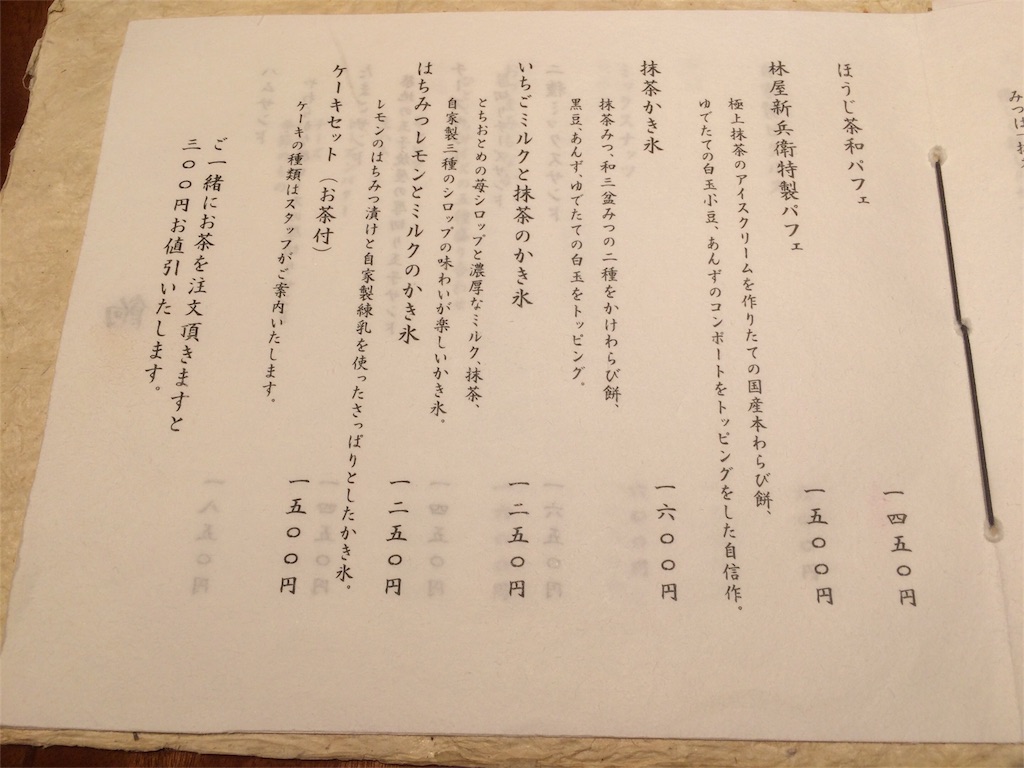 ほうじ茶和パフェ
一四五〇円
林屋新兵衛特製パフェ
一五〇〇円
極上抹茶のアイスクリームを作りたての国産本わらび餅、
ゆでたての白玉小豆、あんずのコンポートをトッピングをした自信作。
抹茶かき氷
一六〇〇円
抹茶みつ、和三盆みつの二種をかけわらび餅、
黒豆、あんず、ゆでたての白玉をトッピング。
いちごミルクと抹茶のかき氷
一二五〇円
とちおとめの苺シロップと濃厚なミルク、抹茶、
自家製三種のシロップの味わいが楽しいかき氷。
はちみつレモンとミルクのかき氷
一二五〇円
レモンのはちみつ漬けと自家製練乳を使ったさっぱりとしたかき氷。
ケーキセット（お茶付）
一五〇〇円
ケーキの種類はスタッフがご案内いたします。
ご一緒にお茶を注文頂きますと
三〇〇円お値引いたします。